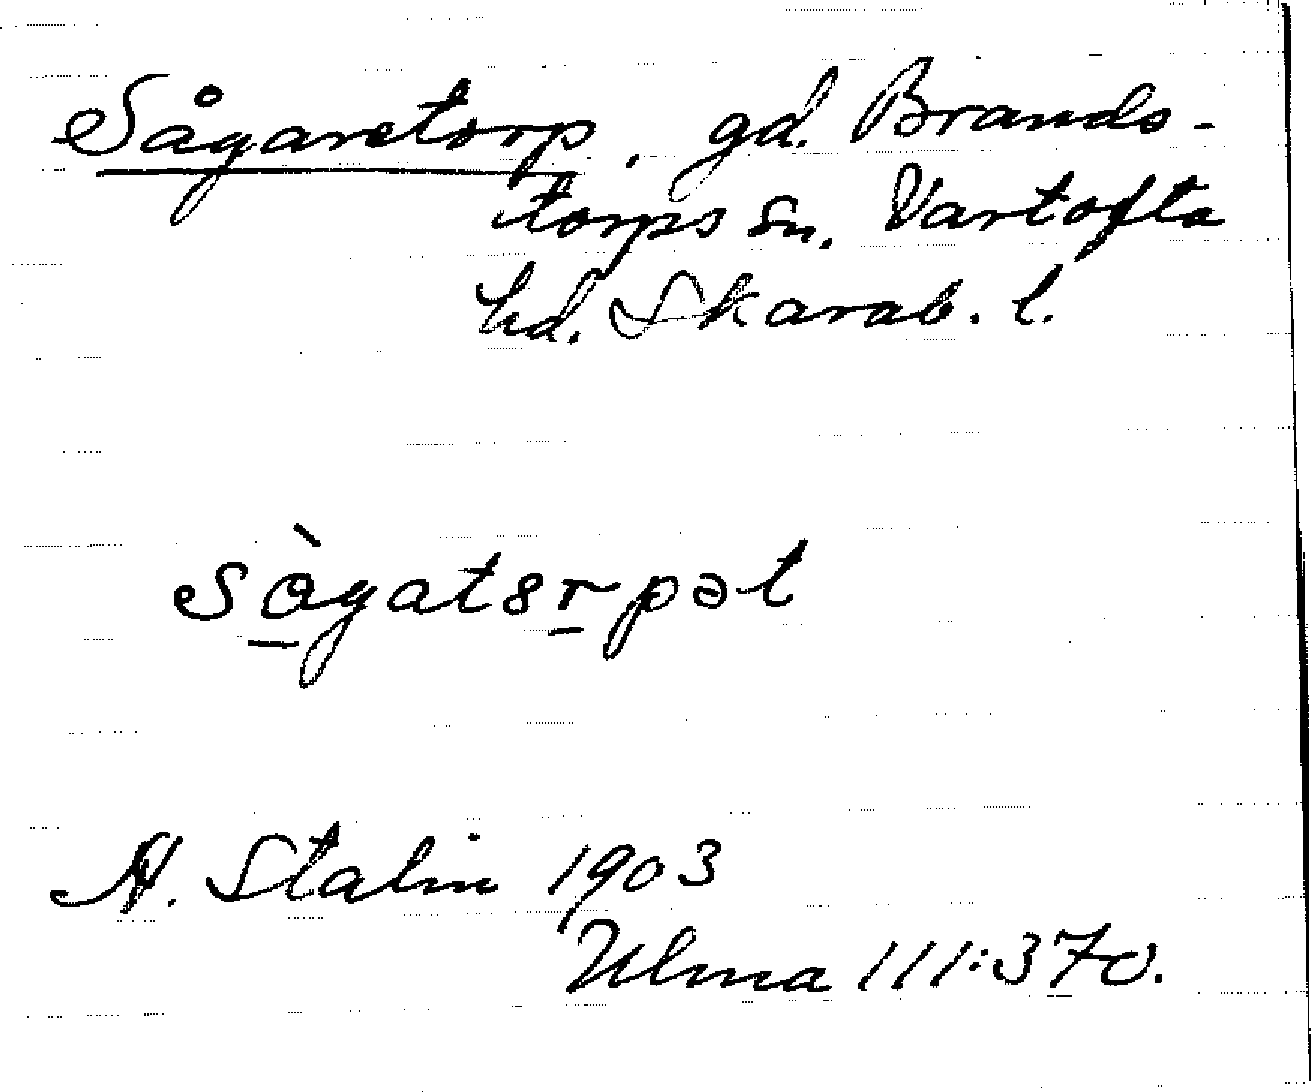 Sågaretorp, gd. Brands-
torps sn. Vartofta
hd. Skarab. l.
sàgatsrpət
A. Stalin 1903
Ulma 111:370.